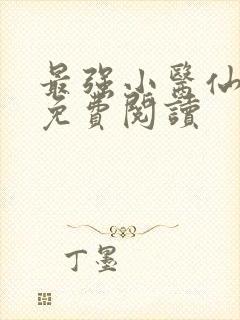 最强小醫仙
免費閱讀
丁墨